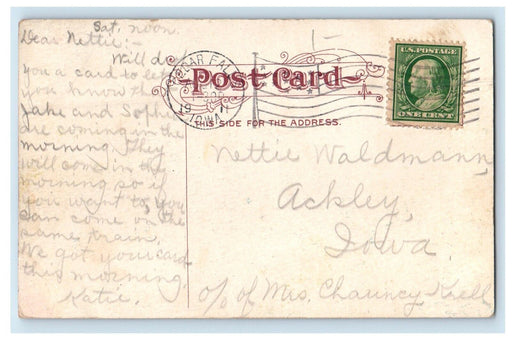 Sat. noon.
Dear Nettie:-
Will do
you a card to let
you know that
Jake and Sophie
are coming in the
morning. They
will come in the
morning so if
you want to, you
can come on the
same train.
We got your card
this morning.
Katie.
Post Card
THIS SIDE FOR THE ADDRESS.
CEDAR FALLS
IOWA
U.S. POSTAGE
ONE CENT
Nettie Waldmann,
Ackley,
Iowa.
c/o of Mrs. Chauncy Krell